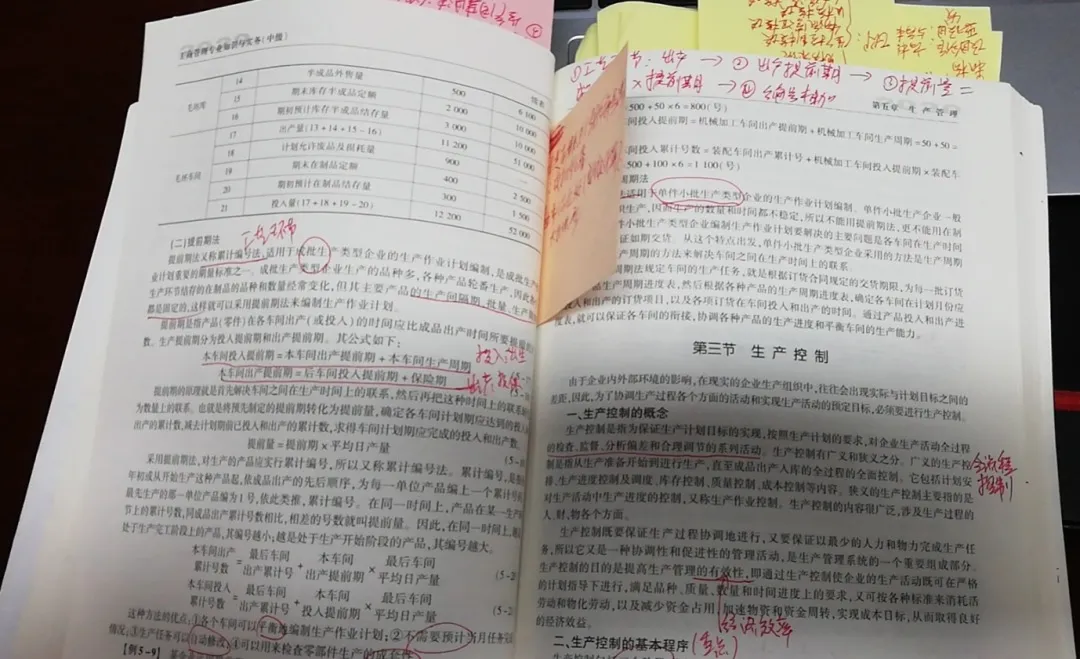 工商管理专业知识与实务(中级)
毛坯库
14
半成品外售量
15
期末库存半成品定额
500
6 100
16
期初预计库存半成品结存量
2 000
10 000
毛坯车间
17
出产量(13+14+15-16)
3 000
10 000
18
计划允许废品及损耗量
11 200
51 000
19
期末在制品定额
900
—
20
期初预计在制品结存量
400
2 500
21
投入量(17+18+19-20)
300
1 500
12 200
52 000
(二)提前期法
提前期法又称累计编号法,适用于成批生产类型企业的生产作业计划编制,是成批生产
业计划重要的期量标准之一。成批生产类型企业生产的品种多,各种产品轮番生产,因此
生产环节结存的在制品的品种和数量经常变化,但其主要产品的生产间隔期、批量、生产
都是固定的,这样就可以采用提前期法来编制生产作业计划。
提前期是指产品(零件)在各车间出产(或投入)的时间应比成品出产时间所要提前的
数。生产提前期分为投入提前期和出产提前期。其公式如下:
本车间投入提前期=本车间出产提前期+本车间生产周期
本车间出产提前期=后车间投入提前期+保险期
提前期的原理就是首先解决车间之间在生产时间上的联系,然后再把这种时间上的联系
为数量上的联系。也就是将预先制定的提前期转化为提前量,确定各车间计划期应达到的投入
出产的累计数,减去计划期前已投入和出产的累计数,求得车间计划期应完成的投入和出产数。
提前量=提前期×平均日产量
采用提前期法,对生产的产品应实行累计编号,所以又称累计编号法。累计编号,是
年初或从开始生产这种产品起,依成品出产的先后顺序,为每一单位产品编上一个累计号码
最先生产的那一单位产品编为1号,依此类推,累计编号。在同一时间上,产品在某一生产
节上的累计号数,同成品出产累计号数相比,相差的号数就叫提前量。因此,在同一时间上,越
处于生产完工阶段上的产品,其编号越小;越是处于生产开始阶段的产品,其编号越大。
本车间出产累计号数=最后车间出产累计号+本车间出产提前期×最后车间平均日产量 (5-2
本车间投入累计号数=最后车间出产累计号+本车间投入提前期×最后车间平均日产量 (5-2
这种方法的优点:①各个车间可以平衡地编制生产作业计划;②不需要预计当月任务完
情况;③生产任务可以自动修改;④可以用来检查零部件生产的成套性。
【例5-9】
第五章 生产管理
500+50×6=800(号)
间投入提前期=机械加工车间出产提前期+机械加工车间生产周期=50+50=
间投入累计号数=装配车间出产累计号+机械加工车间投入提前期×装配车
=500+100×6=1 100(号)
周期法
适用于单件小批生产类型企业的生产作业计划编制。单件小批生产企业一般
生产,因而生产的数量和时间都不稳定,所以不能用提前期法,更不能用在制
小批生产类型企业编制生产作业计划要解决的主要问题是各车间在生产时间
证如期交货。从这个特点出发,单件小批生产类型企业采用的方法是生产周期
周期的方法来解决车间之间在生产时间上的联系。
周期法规定车间的生产任务,就是根据订货合同规定的交货期限,为每一批订货
生产周期进度表,然后根据各种产品的生产周期进度表,确定各车间在计划月份应
投入和出产的订货项目,以及各项订货在车间投入和出产的时间。通过产品投入和出产进
度表,就可以保证各车间的衔接,协调各种产品的生产进度和平衡车间的生产能力。
第三节 生产控制
由于企业内外部环境的影响,在现实的企业生产组织中,往往会出现实际与计划目标之间的
差距,因此,为了协调生产过程各个方面的活动和实现生产活动的预定目标,必须要进行生产控制。
一、生产控制的概念
生产控制是指为保证生产计划目标的实现,按照生产计划的要求,对企业生产活动全过程
的检查、监督、分析偏差和合理调节的系列活动。生产控制有广义和狭义之分。广义的生产控
制是指从生产准备开始到进行生产,直至成品出产入库的全过程的全面控制。它包括计划安
排、生产进度控制及调度、库存控制、质量控制、成本控制等内容。狭义的生产控制主要指的是
对生产活动中生产进度的控制,又称生产作业控制。生产控制的内容很广泛,涉及生产过程的
人、财、物各个方面。
全流程控制
生产控制既要保证生产过程协调地进行,又要保证以最少的人力和物力完成生产任
务;所以它又是一种协调性和促进性的管理活动,是生产管理系统的一个重要组成部分。
生产控制的目的是提高生产管理的有效性,即通过生产控制使企业的生产活动既可在严格
的计划指导下进行,满足品种、质量、数量和时间进度上的要求,又可按各种标准来消耗活
劳动和物化劳动,以及减少资金占用,加速物资和资金周转,实现成本目标,从而取得良好
的经济效益。
二、生产控制的基本程序
(重点)